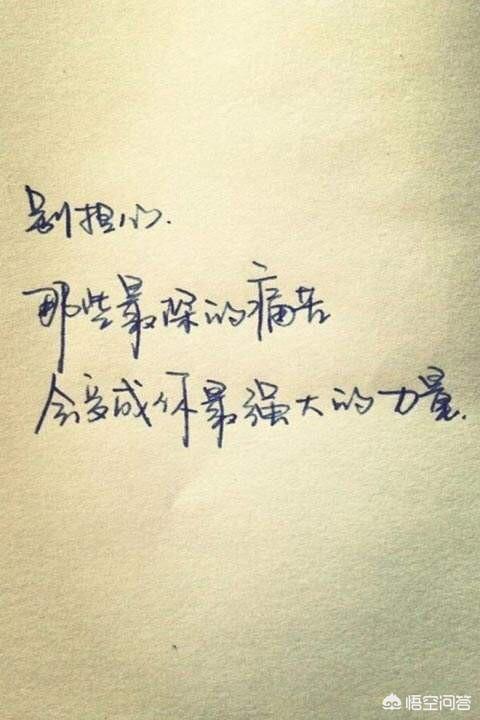 别担心.
那些最深的痛苦
会变成你最强大的力量.
悟空问答